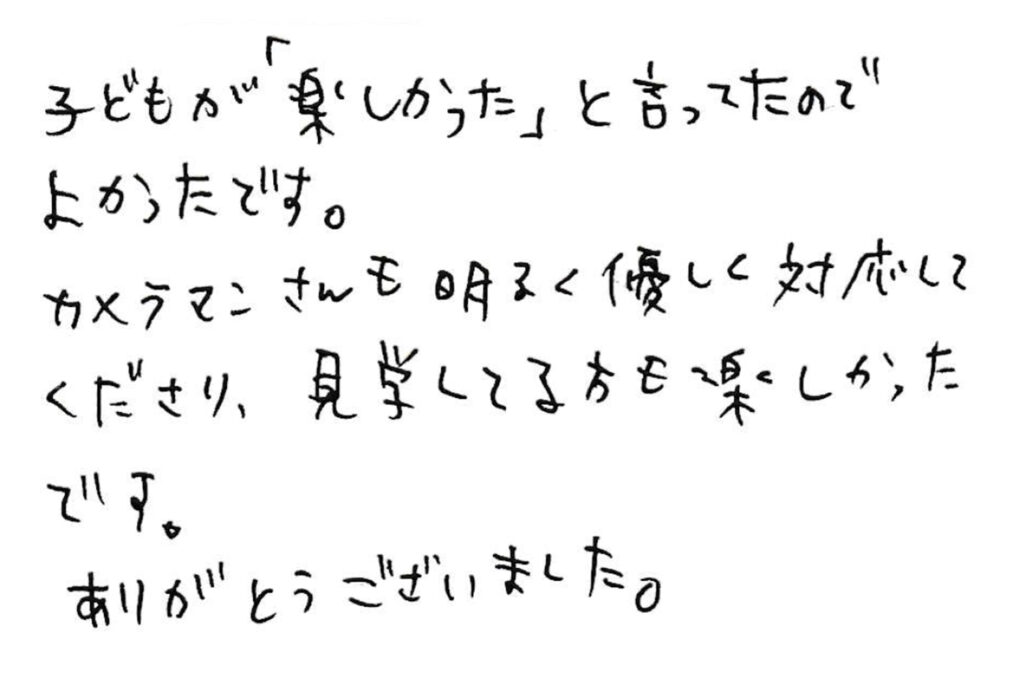 子どもが「楽しかった」と言ってたので
よかったです。
カメラマンさんも明るく優しく対応して
くださり、見学してる方も楽しかった
です。
ありがとうございました。